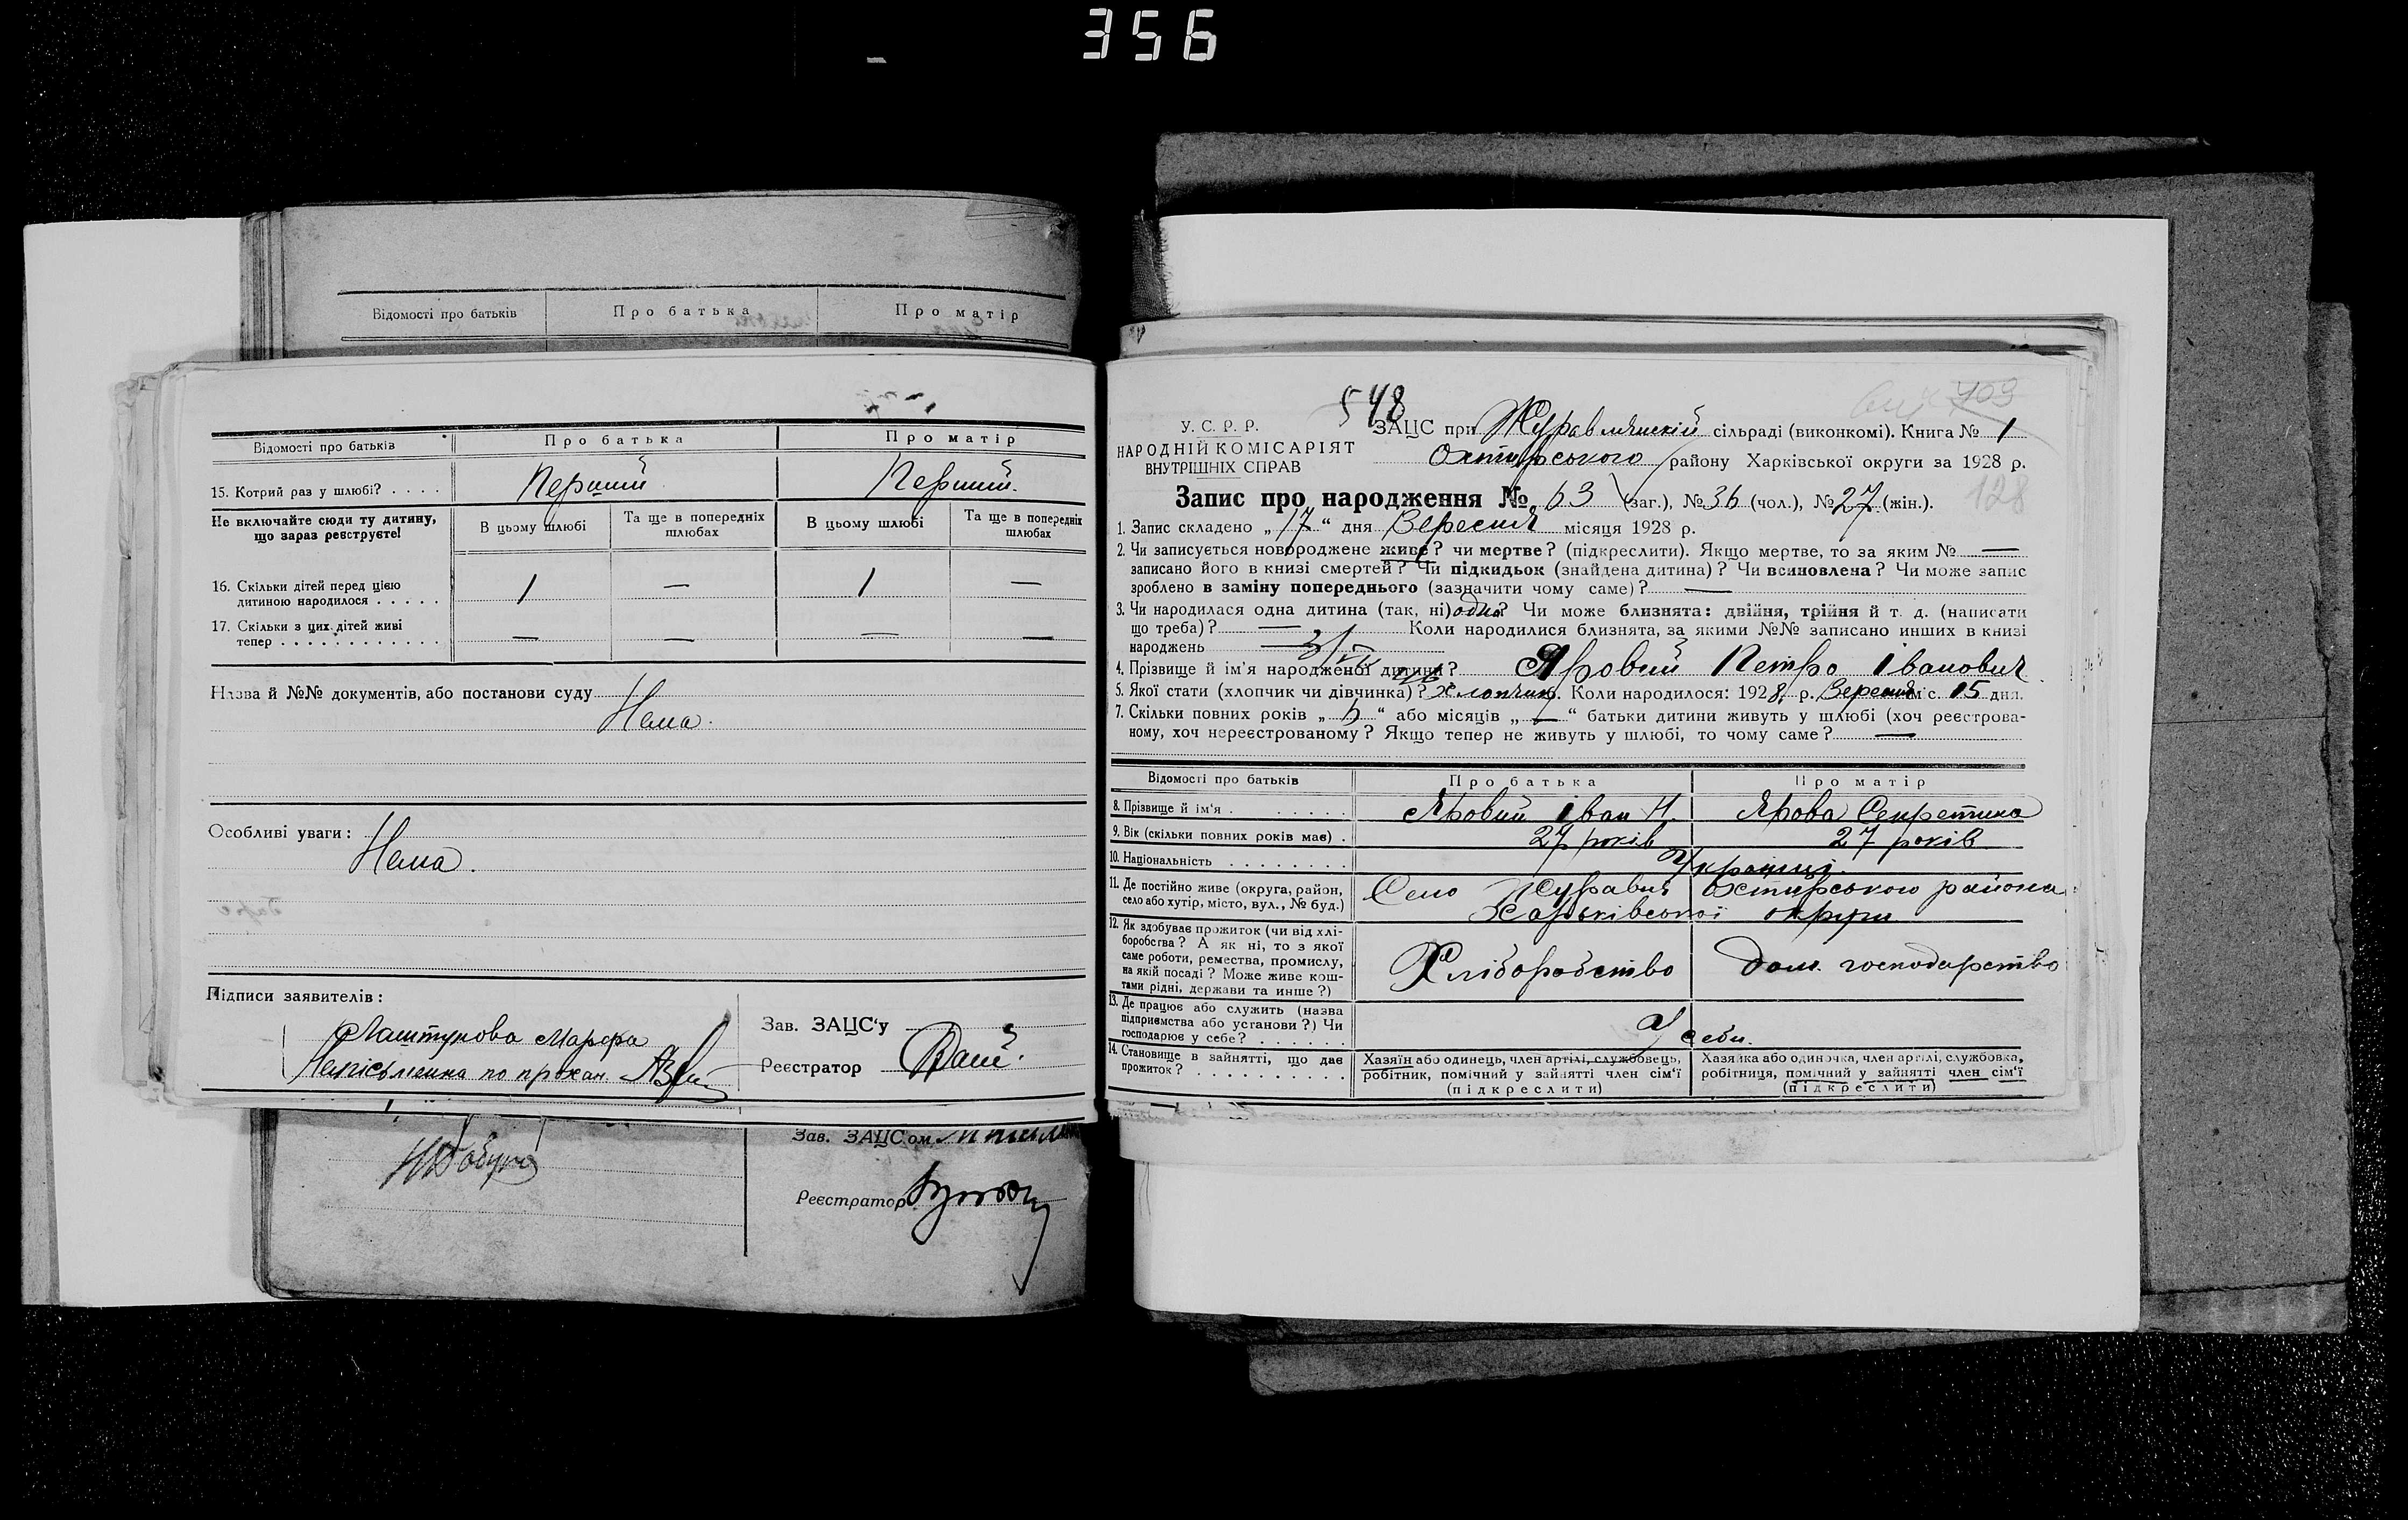 356
Відомості про батьків Про батька Про матір
Відомості про батьків Про батька Про матір
15. Котрий раз у шлюбі? . . . . Перший Перший.
Не включайте сюди ту дитину, що зараз реєструєте!
В цьому шлюбі Та ще в попередніх шлюбах В цьому шлюбі Та ще в попередніх шлюбах
16. Скільки дітей перед цією
дитиною народилося . . . . . 1 — 1 —
17. Скільки з цих дітей живі
тепер . . . . . . . . . . . . — — — —
Назва й №№ документів, або постанови суду
Нема.
Особливі уваги:
Нема.
Підписи заявителів:
Лаштунова Марфа
Неписьменна по прохан.
Зав. ЗАЦС'у
Реєстратор
Зав. ЗАЦСом
Реєстратор
548
403
128
У. С. Р. Р.
НАРОДНІЙ КОМІСАРІЯТ
ВНУТРІШНІХ СПРАВ
ЗАЦС при Журавлянській сільраді (виконкомі). Книга № 1
Охтирського району Харківської округи за 1928 р.
Запис про народження № 63 (заг.), № 36 (чол.), № 27 (жін.).
1. Запис складено „17“ дня Вересня місяця 1928 р.
2. Чи записується новороджене живе? чи мертве? (підкреслити). Якщо мертве, то за яким № —
записано його в книзі смертей? Чи підкидьок (знайдена дитина)? Чи всиновлена? Чи може запис
зроблено в заміну попереднього (зазначити чому саме)? —
3. Чи народилася одна дитина (так, ні) одна? Чи може близнята: двійня, трійня й т. д. (написати
що треба)? — Коли народилися близнята, за якими №№ записано инших в книзі
народжень —
4. Прізвище й ім'я народженої дитини? Яровий Петро Іванович
5. Якої стати (хлопчик чи дівчинка)? хлопчик. Коли народилося: 1928 р. Вересня міс. 15 дня.
7. Скільки повних років „6“ або місяців „—“ батьки дитини живуть у шлюбі (хоч реєстрова-
ному, хоч нереєстрованому? Якщо тепер не живуть у шлюбі, то чому саме? —
Відомості про батьків Про батька Про матір
8. Прізвище й ім'я . . . . . . . Яровий Іван Н. Ярова Секретина
9. Вік (скільки повних років має) . 27 років 27 років
10. Національність . . . . . . . . Українці.
11. Де постійно живе (округа, район,
село або хутір, місто, вул., № буд.) Село Журавня Охтирського района
Харьківської округи
12. Як здобуває прожиток (чи від хлі-
боробства? А як ні, то з якої
саме роботи, ремества, промислу,
на якій посаді? Може живе кош-
тами рідні, держави та инше?) Хліборобство дом. господарство
13. Де працює або служить (назва
підприємства або установи?) Чи
господарює у себе? . . . . . . У себи.
14. Становище в зайнятті, що дає
прожиток? . . . . . . . . . . .
Хазяїн або одинець, член артілі, службовець,
робітник, помічний у зайнятті член сім'ї
(підкреслити)
Хазяйка або одиночка, член артілі, службовка,
робітниця, помічний у зайнятті член сім'ї
(підкреслити)